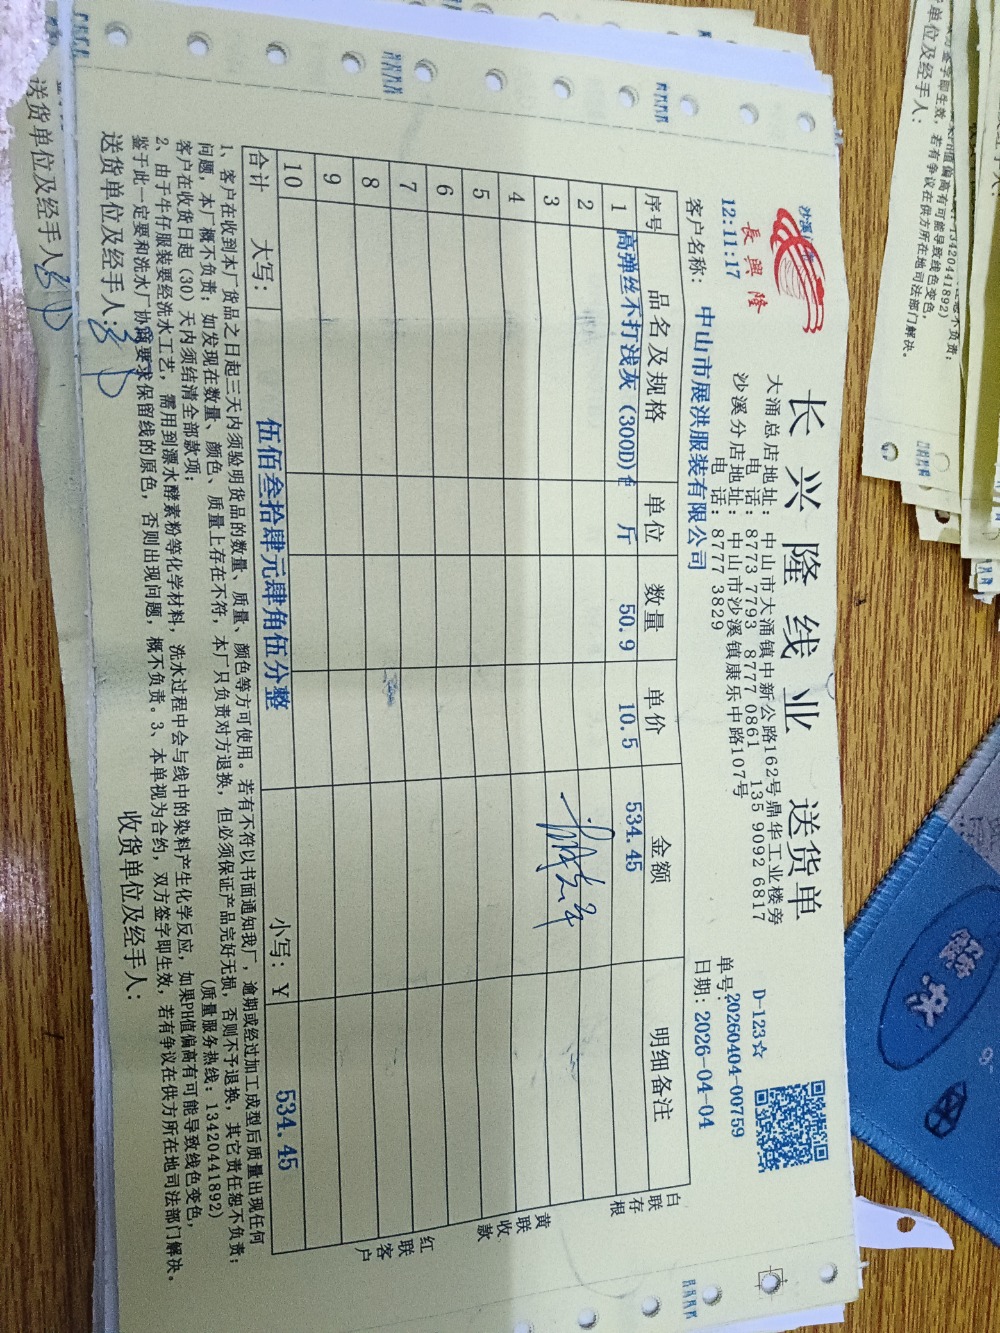 长兴隆线业 送货单
沙溪
長興隆
大涌总店地址：中山市大涌镇中新公路162号鼎华工业楼旁
电话：8773 7793 8777 0861 135 9092 6817
沙溪分店地址：中山市沙溪镇康乐中路107号
电话：8777 3829
D-123☆
12:11:17
单号：20260404-00759
客户名称：中山市展洪服装有限公司
日期：2026-04-04
序号 品名及规格 单位 数量 单价 金额 明细备注
1 高弹丝不打浅灰（300D） 斤 50.9 10.5 534.45
2
3
4
5
6
7
8
9
10
合计 大写：伍佰叁拾肆元肆角伍分整 小写：Y 534.45
白联存根
黄联收款
红联客户
1、客户在收到本厂货品之日起三天内须验明货品的数量、质量、颜色等方可使用。若有不符以书面通知我厂，逾期或经过加工成型后质量出现任何
问题，本厂概不负责；如发现在数量、颜色、质量上存在不符，本厂只负责对方退换，但必须保证产品完好无损，否则不予退换，其它责任恕不负责；
客户在收货日起（30）天内须结清全部款项； （质量服务热线：13420441892）
2、由于牛仔服装要经洗水工艺，需用到漂水酵素粉等化学材料，洗水过程中会与线中的染料产生化学反应，如果PH值偏高有可能导致线色变色，
鉴于此一定要和洗水厂协商要求保留线的原色，否则出现问题，概不负责。3、本单视为合约，双方签字即生效，若有争议在供方所在地司法部门解决。
送货单位及经手人： 收货单位及经手人：
送货单位及经手人
恕不负责；
13420441892）
PH值偏高有可能导致线色变色，
签字即生效，若有争议在供方所在地司法部门解决。
单位及经手人：